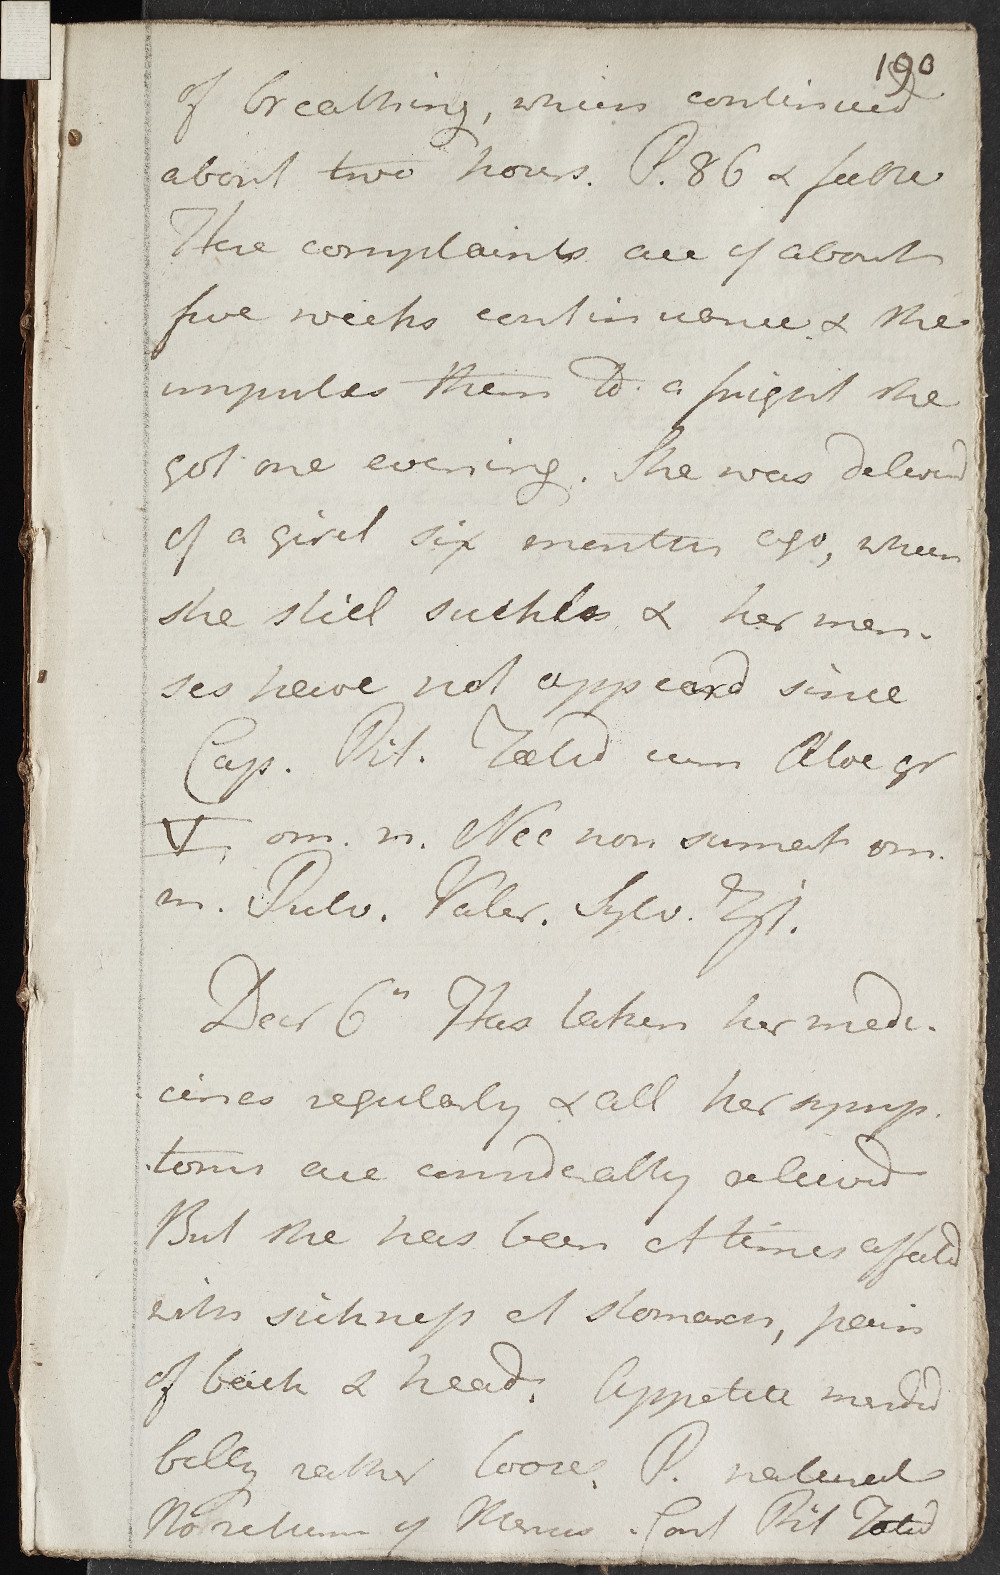 190
of breathing, which continued
about two hours. P. 86 & feeble
These complaints are of about
five weeks continuance & she
imputes them to a fright she
got one evening. She was deliverd
of a girl six months ago, whom
she still suckles & her men-
ses have not appeard since
Cap. Pil. Fœtid cum Aloe gr
V, om. n. Nec non sumat om.
m. Pulv. Valer. Sylv. ʒſs.
Decr 6th Has taken her medi-
cines regularly & all her symp-
toms are considerably relievd
But she has been at times affectd
with sickness at stomach, pain
of back & head. Appetite mended
belly rather loose, P. natural
No return of Menses. Cont Pil Fœtid